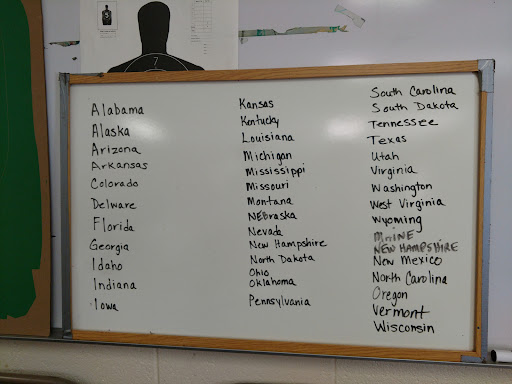 7
Alabama
Alaska
Arizona
Arkansas
Colorado
Delware
Florida
Georgia
Idaho
Indiana
Iowa
Kansas
Kentucky
Louisiana
Michigan
Mississippi
Missouri
Montana
NEbraska
Nevada
New Hampshire
North Dakota
Ohio
Oklahoma
Pennsylvania
South Carolina
South Dakota
Tennessee
Texas
Utah
Virginia
Washington
West Virginia
Wyoming
MAINE
NEW HAMPSHIRE
New Mexico
North Carolina
Oregon
Vermont
Wisconsin